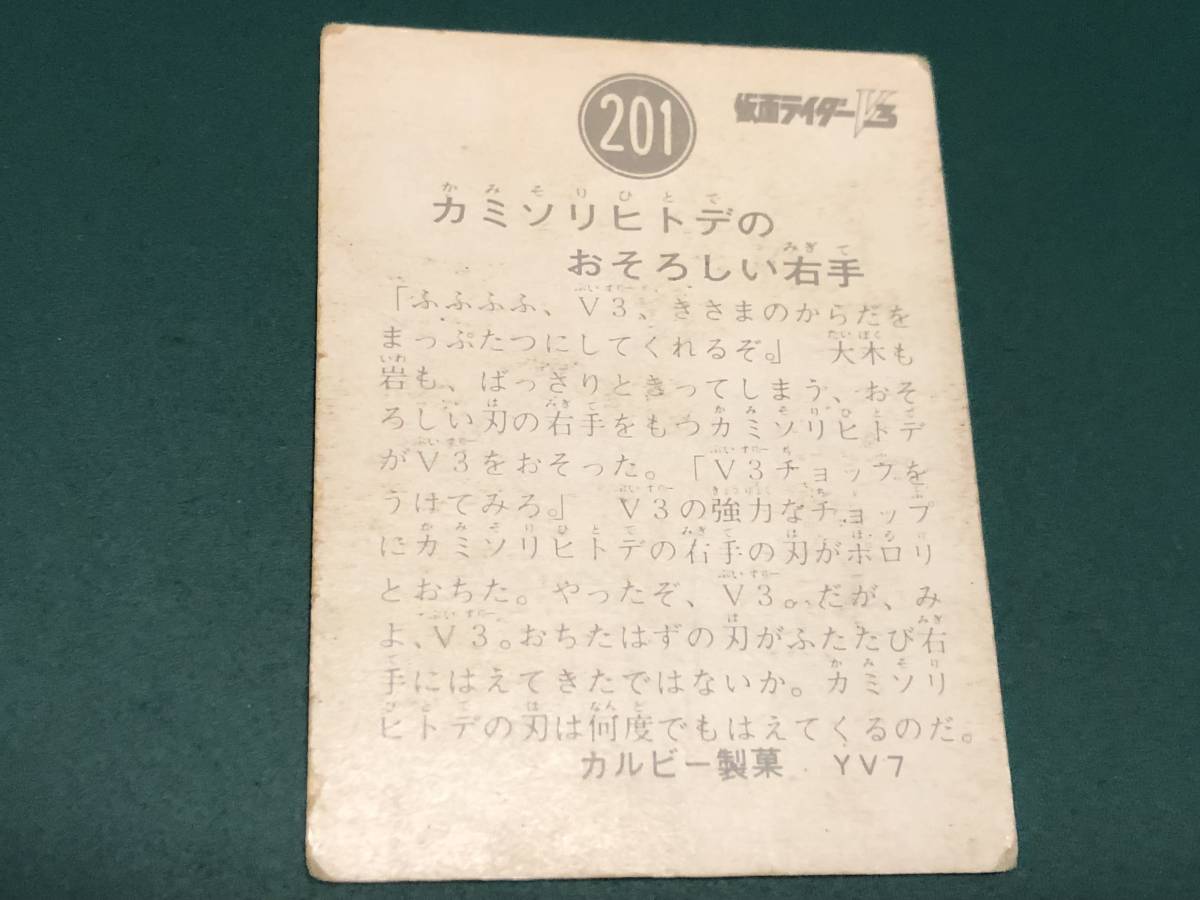 201
仮面ライダーV3
カミソリヒトデの
おそろしい右手
「ふふふふ、V3、きさまのからだを
まっぷたつにしてくれるぞ。」 大木も
岩も、ばっさりときってしまう、おそ
ろしい刃の右手をもつカミソリヒトデ
がV3をおそった。「V3チョップを
うけてみろ。」 V3の強力なチョップ
にカミソリヒトデの右手の刃がポロリ
とおちた。やったぞ、V3。だが、み
よ、V3。おちたはずの刃がふたたび右
手にはえてきたではないか。カミソリ
ヒトデの刃は何度でもはえてくるのだ。
カルビー製菓 YV7